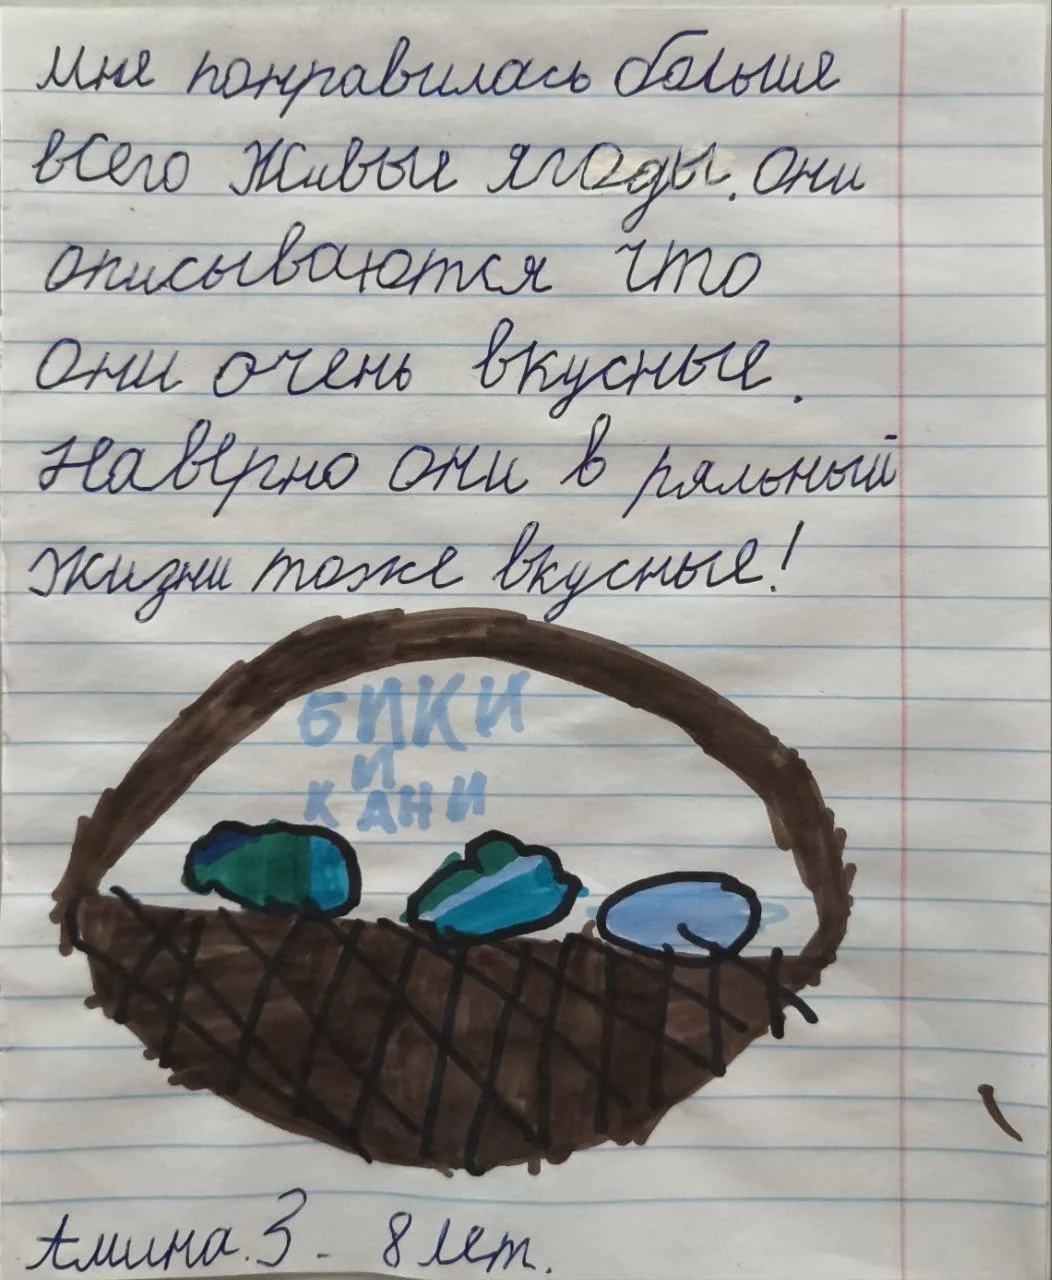 Мне понравилась больше
всего Живые ягоды. они
описываются что
они очень вкусные.
Наверно они в ряльный
жизни тоже вкусные!
БИКИ
И
КАНИ
Амина.З - 8 лет.